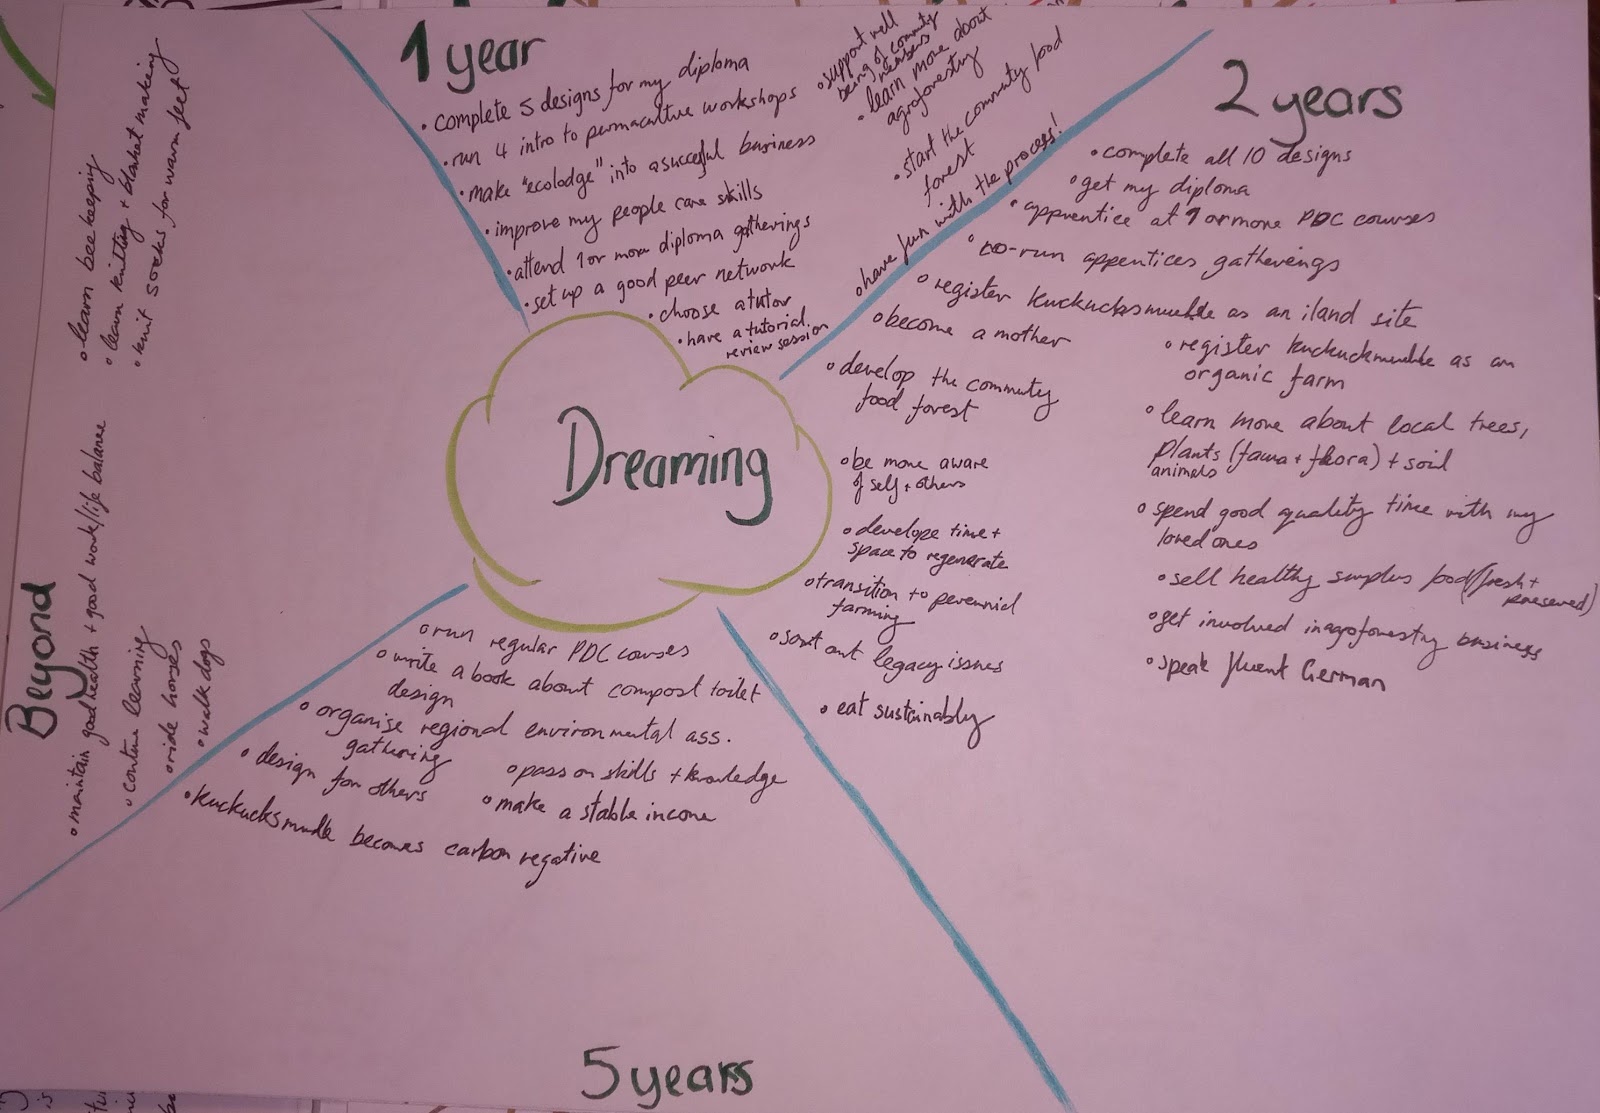 Dreaming
1 year
• complete 5 designs for my diploma
• run 4 intro to permaculture workshops
• make "ecolodge" into a succesful business
• improve my people care skills
• attend 1 or more diploma gatherings
• set up a good peer network
• choose a tutor
• have a tutorial.
review session
• support well
being of commuity
members
• learn more about
agroforestry
• start the commuity food
forest
• have fun with the process!
2 years
• complete all 10 designs
• get my diploma
• apprentice at 1 or more PDC courses
• co-run appentices gatherings
• register Kuckucksmuehle as an iland site
• become a mother
• register Kuckucksmuehle as an
organic farm
• develop the commuity
food forest
• learn more about local trees,
plants (fauna + flora) + soil
animals
• be more aware
of self + others
• spend good quality time with my
loved ones
• develope time +
space to regenerate
• sell healthy surplus food (fresh +
preserved)
• transition to perennial
farming
• get involved in agroforestry business
• sort out legacy issues
• speak fluent German
• eat sustainably
5 years
• run regular PDC courses
• write a book about compost toilet
design
• organise regional environmental ass.
gathering
• design for others
• pass on skills + knowledge
• make a stable income
• Kuckucksmuehle becomes carbon negative
Beyond
• maintain good health + good work/life balance
• continue learning
• ride horses
• walk dogs
• learn bee keeping
• learn knitting + blanket making
• knit socks for warm feet